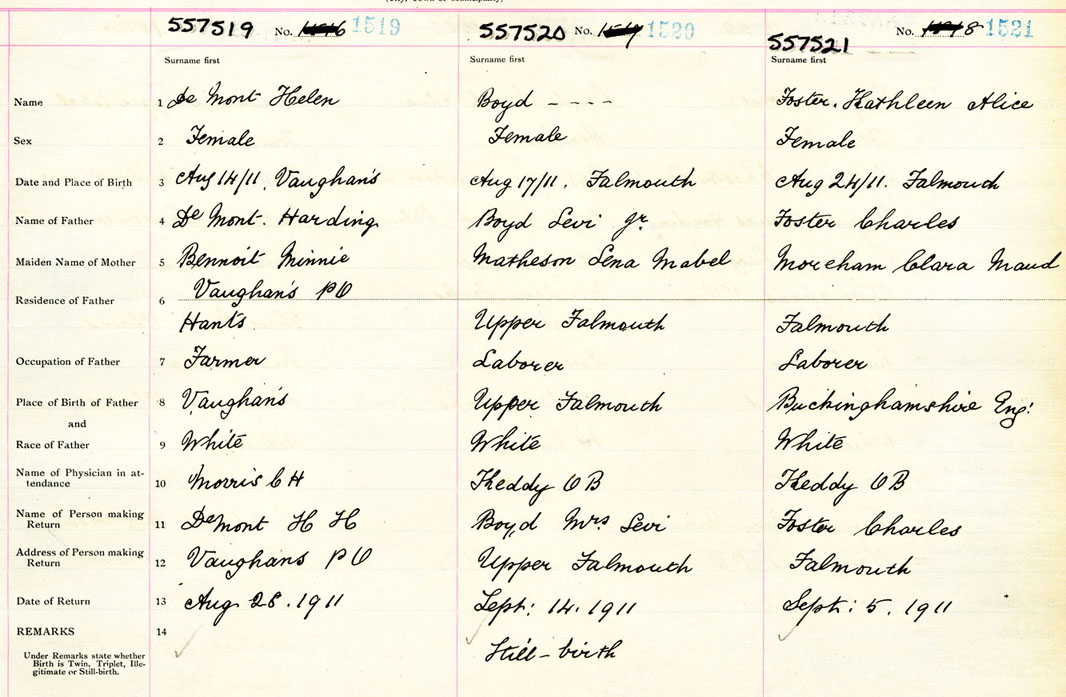 557519 No. 1519 557520 No. 1520 557521 No. 1521
Surname first Surname first Surname first
Name 1 De Mont Helen Boyd ---- Foster. Kathleen Alice
Sex 2 Female Female Female
Date and Place of Birth 3 Aug 14/11, Vaughan's Aug 17/11. Falmouth Aug 24/11. Falmouth
Name of Father 4 De Mont. Harding Boyd Levi Jr. Foster Charles
Maiden Name of Mother 5 Bennoit Minnie Matheson Lena Mabel Moreham Clara Maud
Residence of Father 6 Vaughan's PO
Hants Upper Falmouth Falmouth
Occupation of Father 7 Farmer Laborer Laborer
Place of Birth of Father 8 Vaughan's Upper Falmouth Buckinghamshire Eng!
and
Race of Father 9 White White White
Name of Physician in at-
tendance 10 Morris C H Keddy O B Keddy O B
Name of Person making
Return 11 DeMont H H Boyd Mrs Levi Foster Charles
Address of Person making
Return 12 Vaughans PO Upper Falmouth Falmouth
Date of Return 13 Aug 28. 1911 Sept: 14. 1911 Sept: 5. 1911
REMARKS 14
Under Remarks state whether
Birth is Twin, Triplet, Ille-
gitimate or Still-birth.
Still-birth